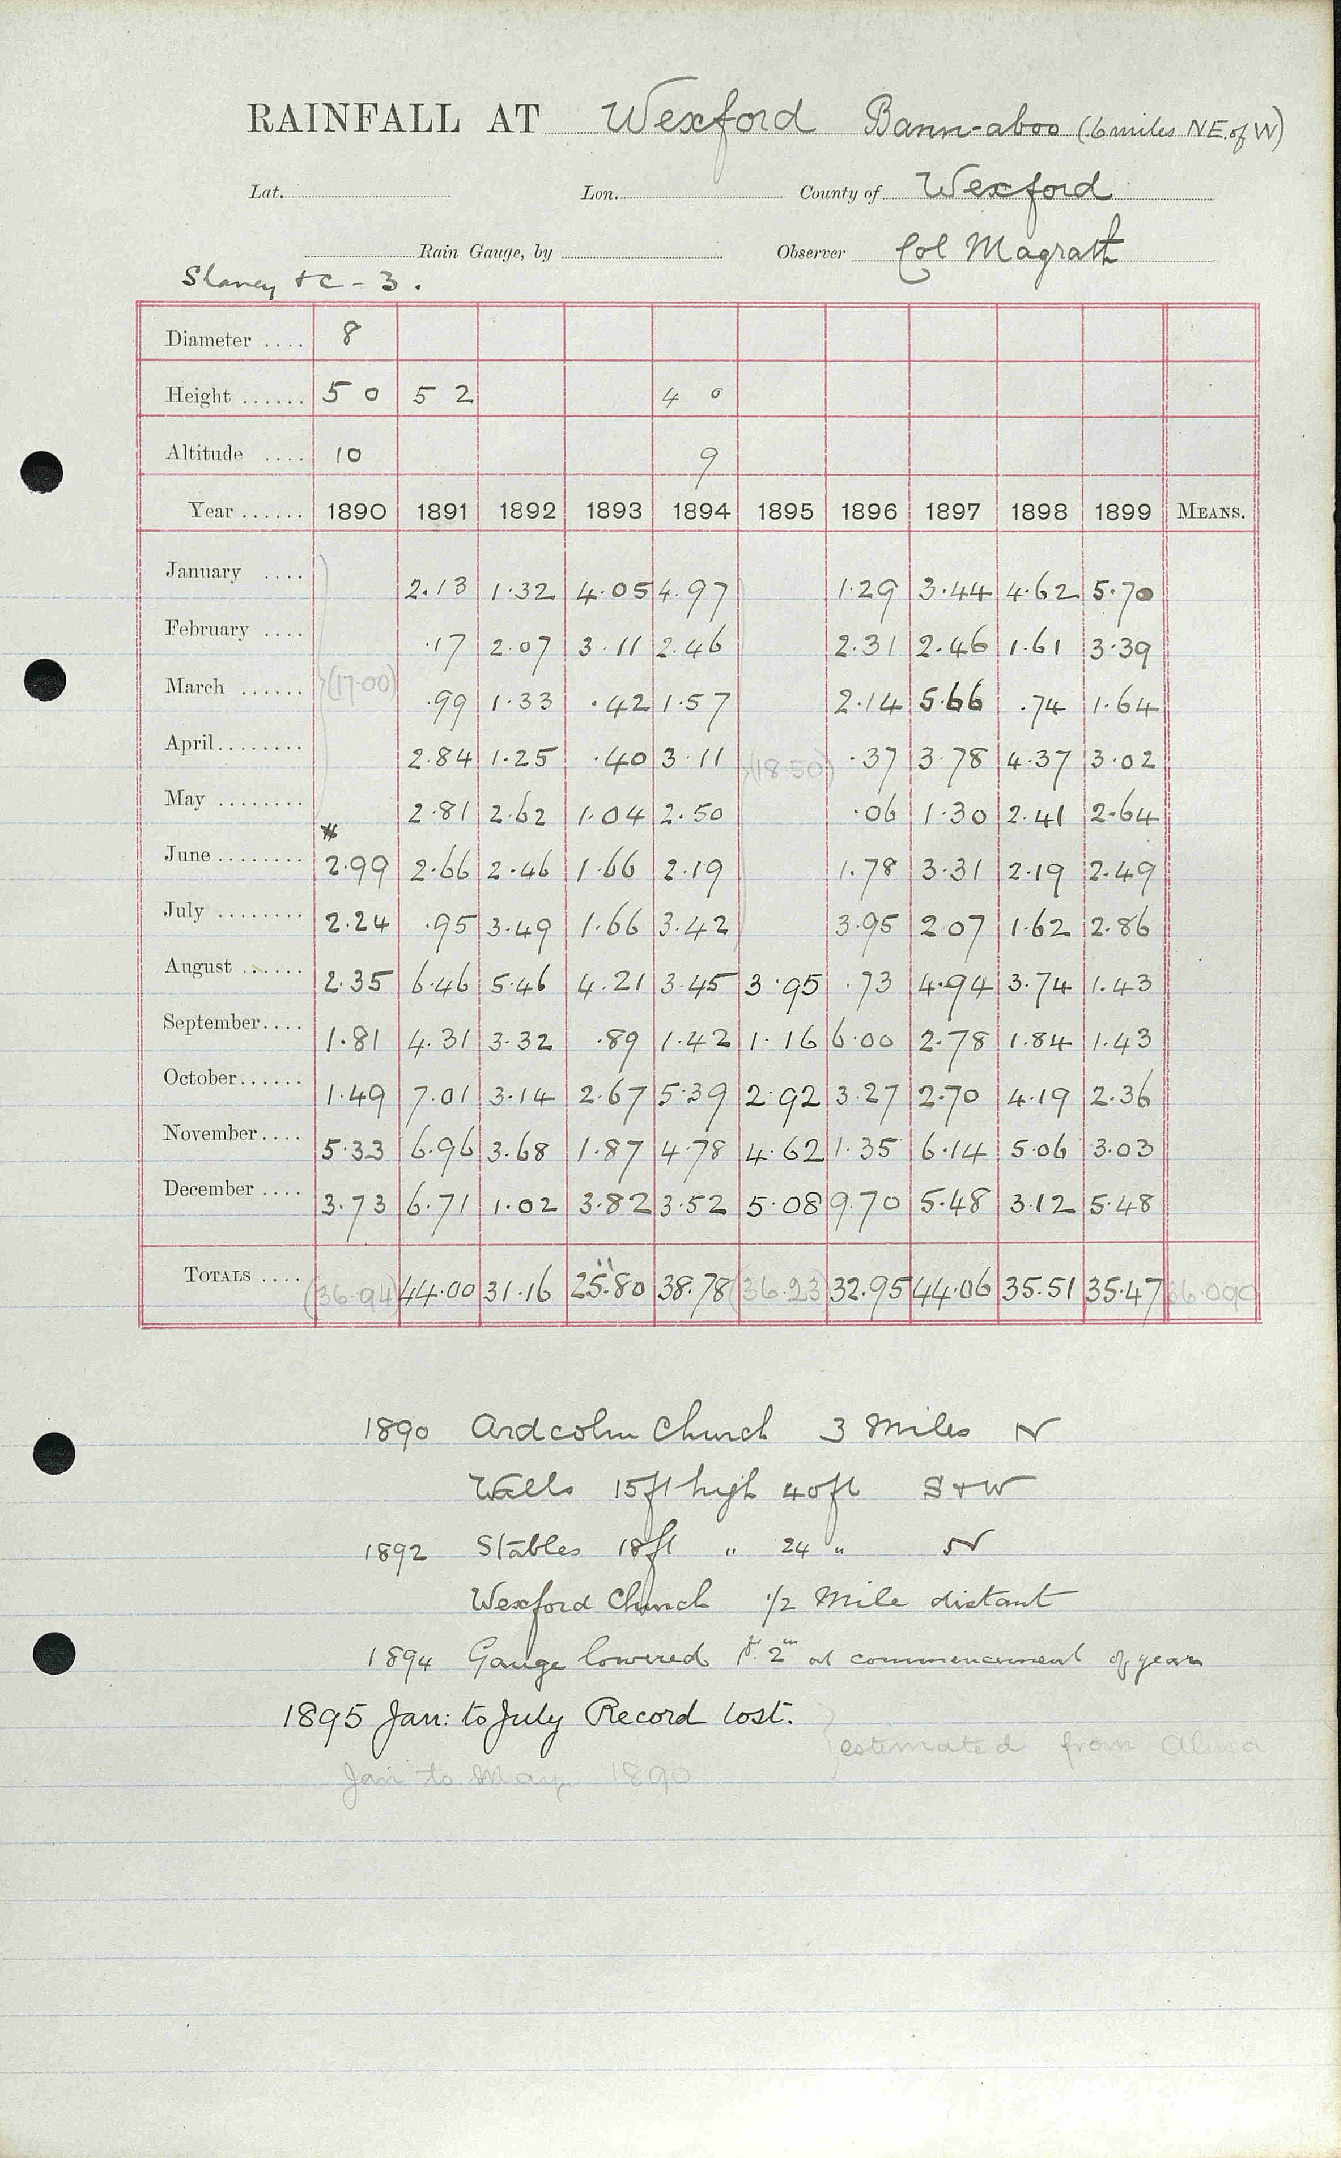 RAINFALL AT Wexford Bann-aboo (6 miles NE. of W)
Lat. Lon. County of Wexford
Rain Gauge, by Observer Col Magrath
Slaney + C - 3.
Diameter .... 8
Height ...... 5 0 5 2 4 0
Altitude .... 10 9
Year ...... 1890 1891 1892 1893 1894 1895 1896 1897 1898 1899 MEANS.
January .... 2.13 1.32 4.05 4.97 1.29 3.44 4.62 5.70
February .... .17 2.07 3.11 2.46 2.31 2.46 1.61 3.39
March ...... (17.00) .99 1.33 .42 1.57 2.14 5.66 .74 1.64
April........ 2.84 1.25 .40 3.11 (18.50) .37 3.78 4.37 3.02
May ........ 2.81 2.62 1.04 2.50 .06 1.30 2.41 2.64
*
June ........ 2.99 2.66 2.46 1.66 2.19 1.78 3.31 2.19 2.49
July ........ 2.24 .95 3.49 1.66 3.42 3.95 2.07 1.62 2.86
August ...... 2.35 6.46 5.46 4.21 3.45 3.95 .73 4.94 3.74 1.43
September.... 1.81 4.31 3.32 .89 1.42 1.16 6.00 2.78 1.84 1.43
October...... 1.49 7.01 3.14 2.67 5.39 2.92 3.27 2.70 4.19 2.36
November.... 5.33 6.96 3.68 1.87 4.78 4.62 1.35 6.14 5.06 3.03
December .... 3.73 6.71 1.02 3.82 3.52 5.08 9.70 5.48 3.12 5.48
TOTALS .... (36.94) 44.00 31.16 25.80 38.78 (36.23) 32.95 44.06 35.51 35.47 36.090
1890 Ardcolm Church 3 Miles N
Walls 15ft high 40ft S + W
1892 Stables 18ft " 24 " N
Wexford Church 1/2 Mile distant
1894 Gauge lowered 1ft 2in at commencement of year
1895 Jan: to July Record lost.
estimated from
Jan to May 1890